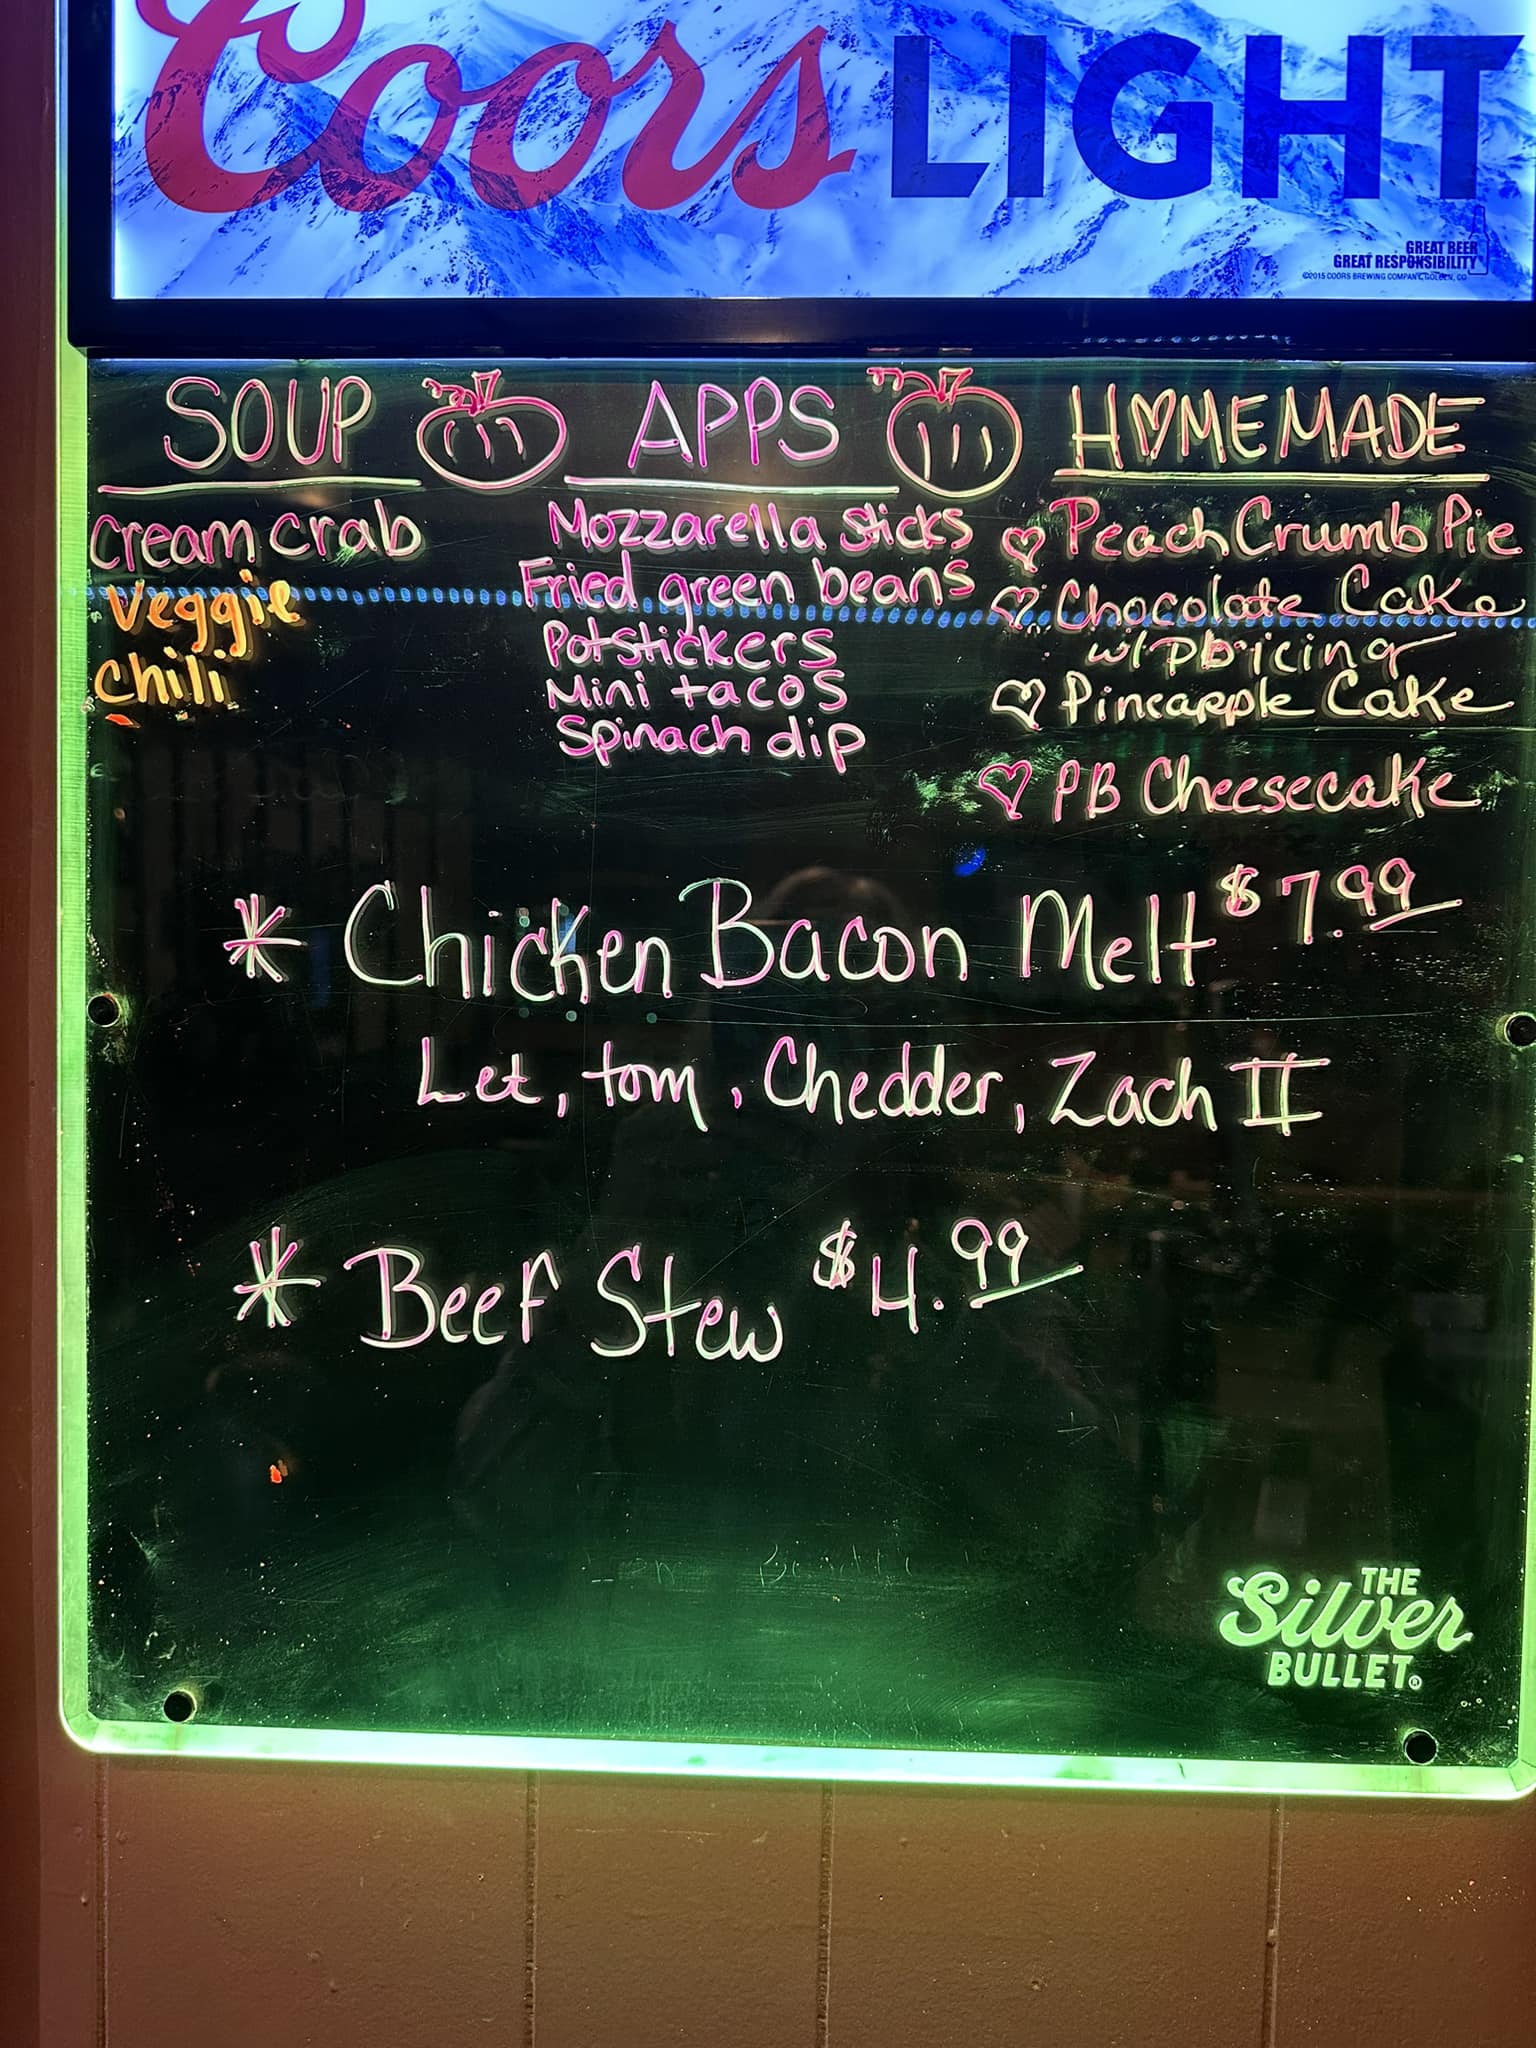 Coors LIGHT
GREAT BEER
GREAT RESPONSIBILITY
©2015 COORS BREWING COMPANY, GOLDEN, CO
SOUP
Cream Crab
Veggie
Chili
APPS
Mozzarella Sticks
Fried green beans
Potstickers
Mini tacos
Spinach dip
HOMEMADE
Peach Crumb Pie
Chocolate Cake
w/ pb icing
Pineapple Cake
PB Cheesecake
* Chicken Bacon Melt $7.99
Let, tom, Chedder, Zach II
* Beef Stew $4.99
THE
Silver
BULLET®